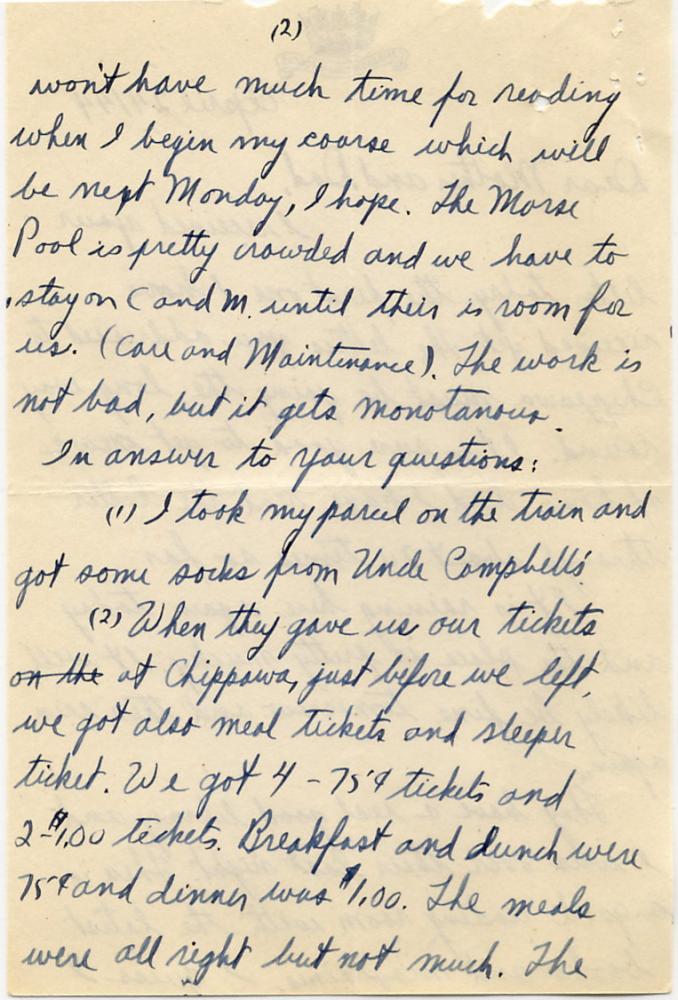 (2)
won't have much time for reading
when I begin my course which will
be next Monday, I hope. The Morse
Pool is pretty crowded and we have to
stay on C and M. until their is room for
us. (Care and Maintenance). The work is
not bad, but it gets monotanous.
In answer to your questions:
(1) I took my parcel on the train and
got some socks from Uncle Campbell's.
(2) When they gave us our tickets
on the at Chippawa, just before we left,
we got also meal tickets and sleeper
ticket. We got 4 - 75¢ tickets and
2-$1.00 tickets. Breakfast and lunch were
75¢ and dinner was $1.00. The meals
were all right but not much. The